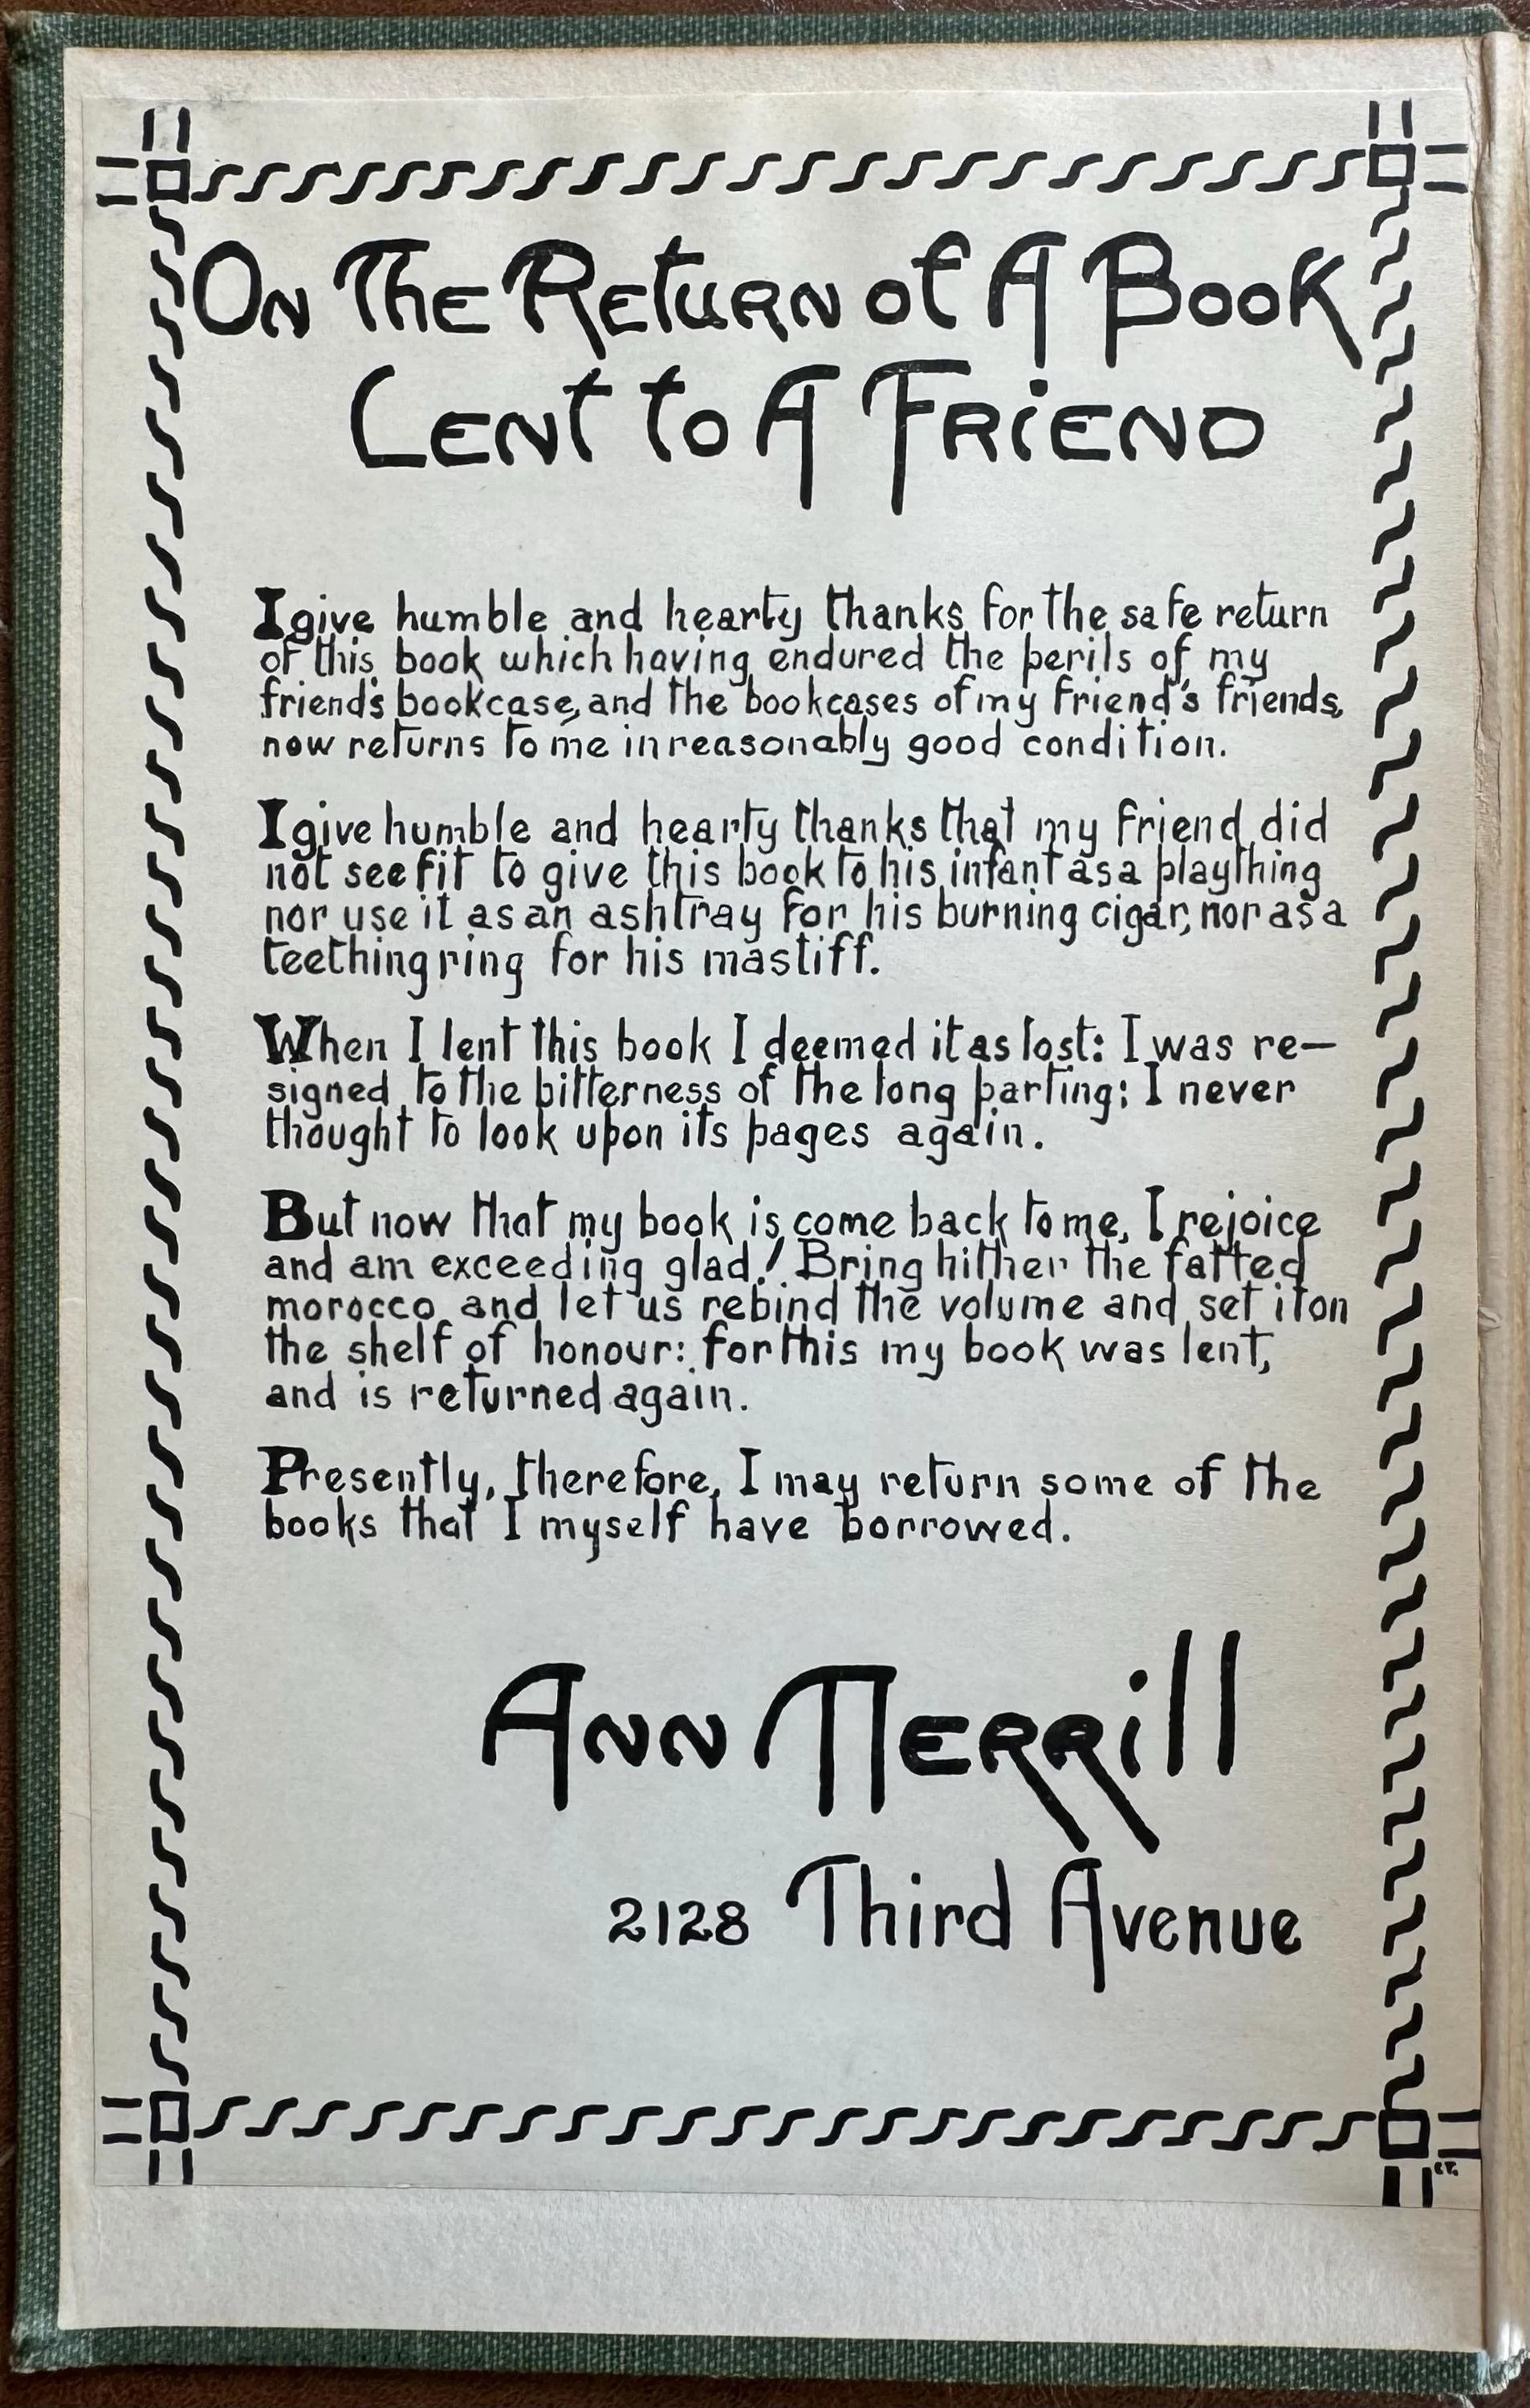 On The Return of A Book
Lent to A Friend
I give humble and hearty thanks for the safe return
of this book which having endured the perils of my
friend's bookcase, and the bookcases of my friend's friends,
now returns to me in reasonably good condition.
I give humble and hearty thanks that my friend did
not see fit to give this book to his infant as a plaything
nor use it as an ashtray for his burning cigar, nor as a
teething ring for his mastiff.
When I lent this book I deemed it as lost: I was re-
signed to the bitterness of the long parting: I never
thought to look upon its pages again.
But now that my book is come back to me, I rejoice
and am exceeding glad! Bring hither the fatted
morocco and let us rebind the volume and set it on
the shelf of honour: for this my book was lent,
and is returned again.
Presently, therefore, I may return some of the
books that I myself have borrowed.
Ann Merrill
2128 Third Avenue